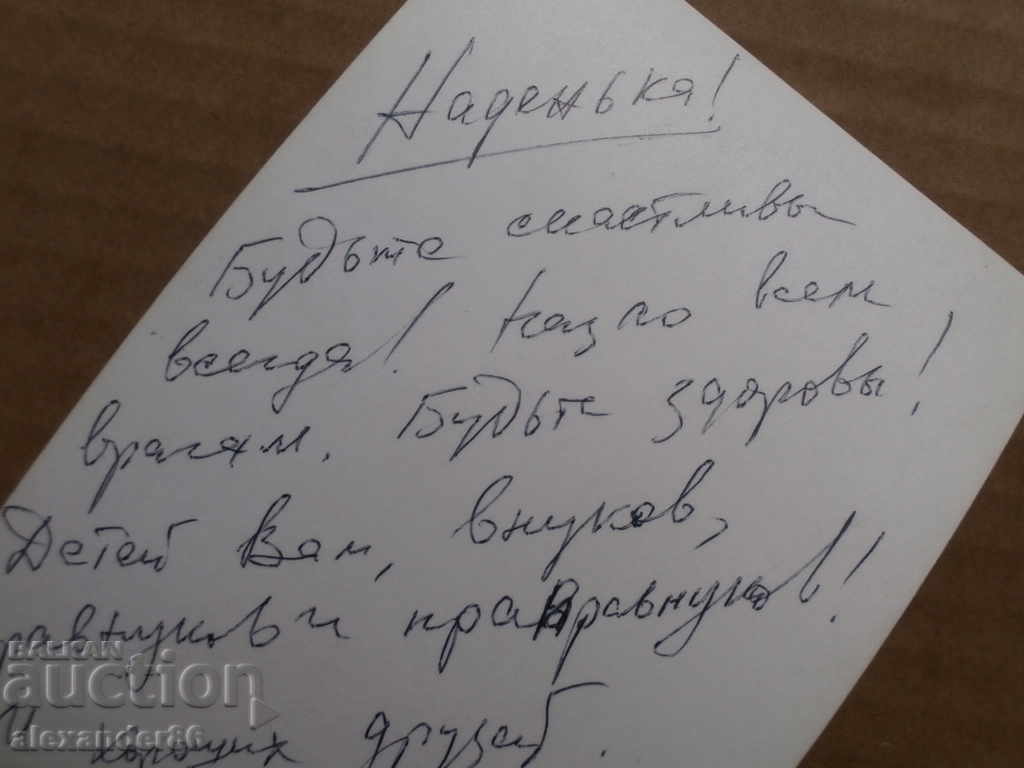 Наденька!
Будьте счастливы
всегда! Назло всем
врагам. Будьте здоровы!
Детей Вам, внуков,
равнуков и праправнуков!
И хороших друзей.
BALKAN
auction
alexander86